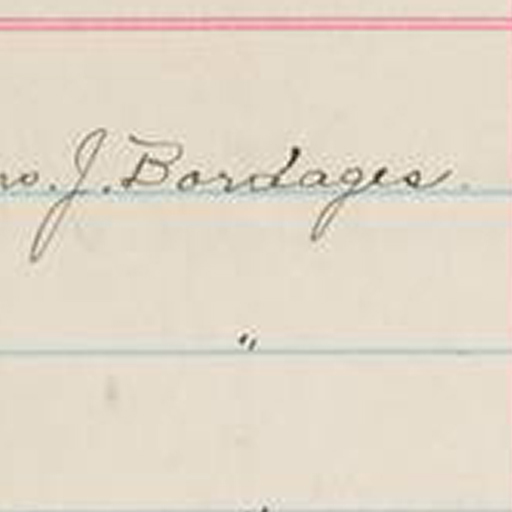 J. Bordages.
"